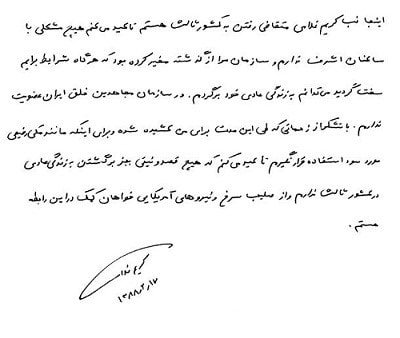 اینجانب کریم غلامی متقاضی رفتن به کشور ثالث هستم تاکید می کنم هیچ مشکلی با
ساکنان اشرف ندارم و سازمان مرا از گذشته مخیر کرده بود که هرگاه شرایط برایم
سخت گردید می توانم به زندگی عادی خود برگردم . در سازمان مجاهدین خلق ایران عضویت
ندارم . با تشکر از زحماتی که طی این مدت برای من کشیده شده و برای اینکه مانند علی رضیی
مورد سوء استفاده قرار نگیرم تاکید می کنم که هیچ قصد و نیتی بجز برگشتن به زندگی عادی
در کشور ثالث ندارم و از صلیب سرخ و نیروهای آمریکایی خواهان کمک در این رابطه
هستم .
۱۳۸۸,۲,۱۷